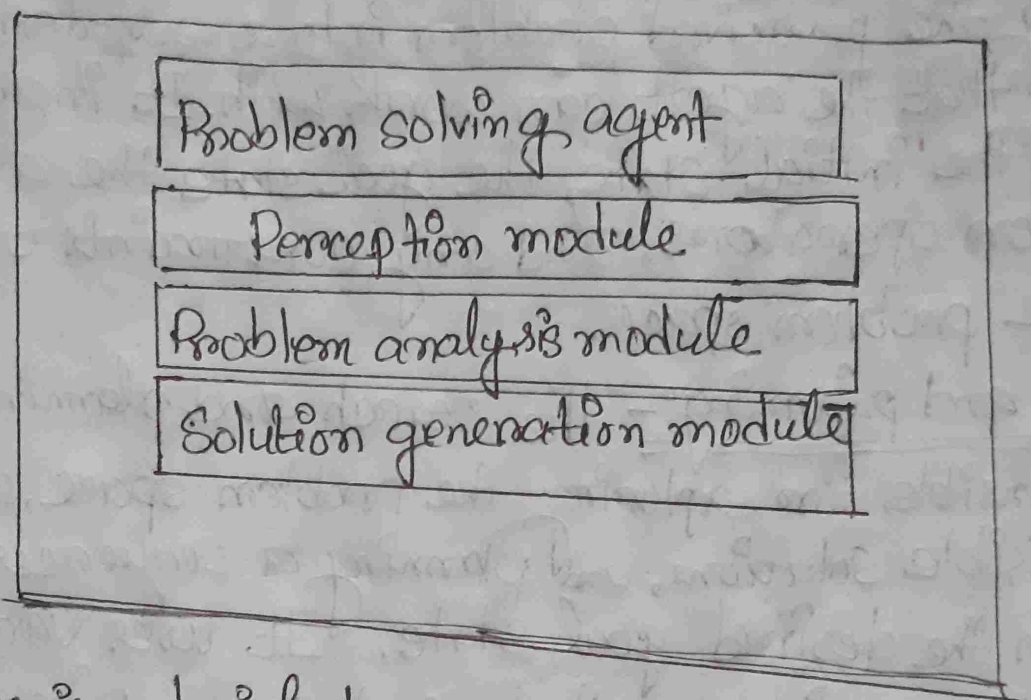 Problem solving agent
Perception module
Problem analysis module
Solution generation module